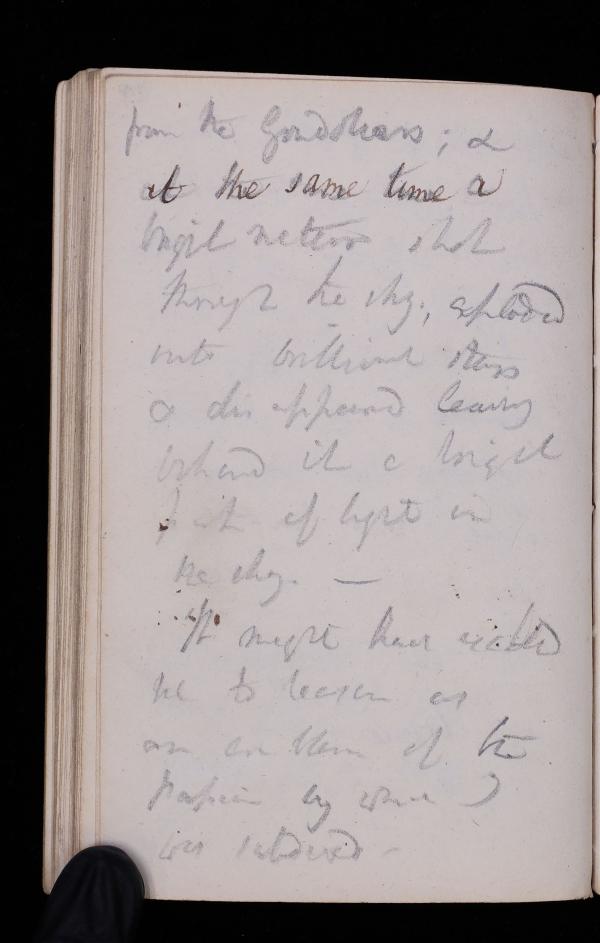 from the Gondoliers; &
at the same time a
bright meteor shot
through the sky, exploded
into brilliant stars
& disappeared leaving
behind it a bright
path of light in
the sky. —
It might have excited
me to reason as
an emblem of the
Passion by which I
was subdued -